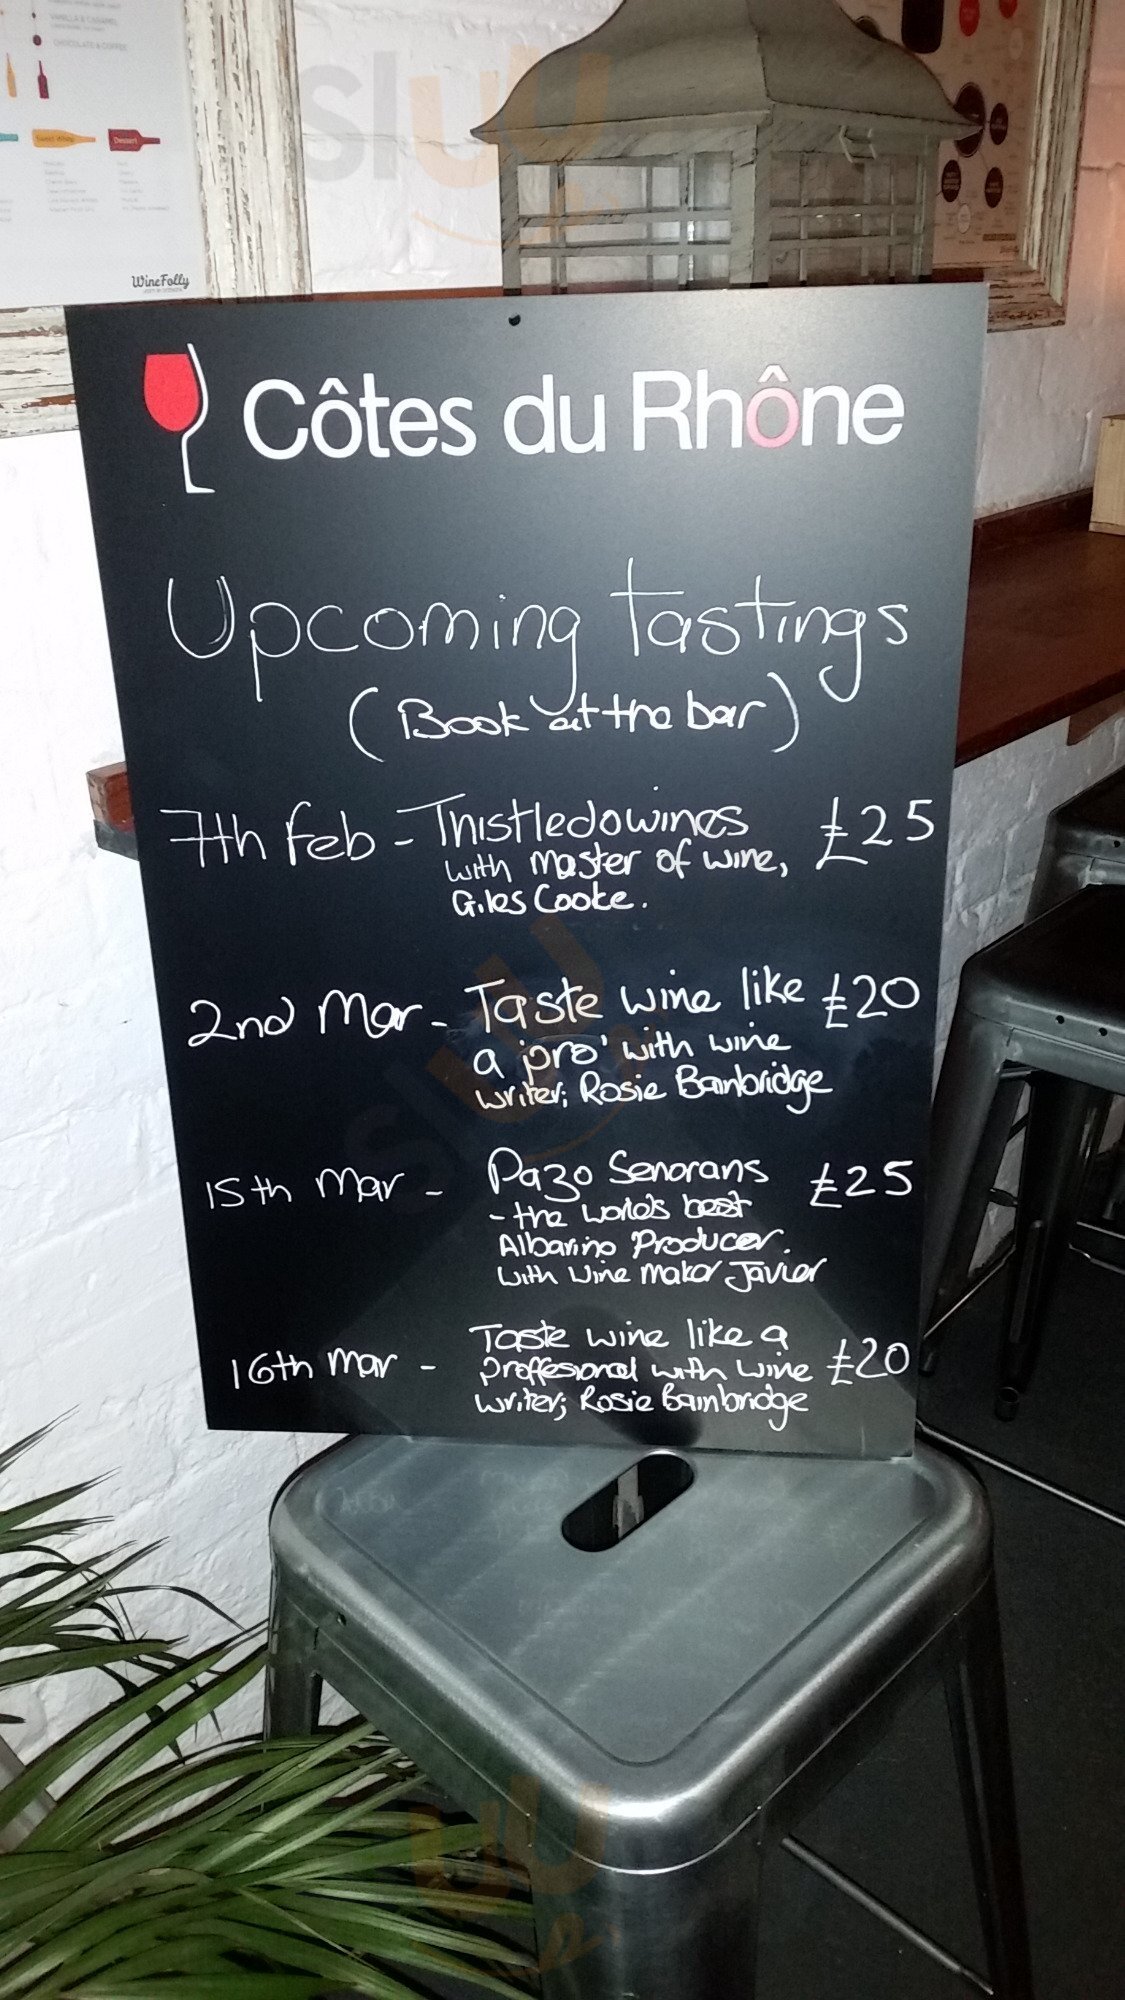 VANILLA & CARAMEL
CHOCOLATE & COFFEE
Sweet White
Dessert
WineFolly
sluu
Côtes du Rhône
Upcoming tastings
(Book at the bar)
7th Feb - Thistledowines £25
with master of wine,
Giles Cooke.
2nd Mar - Taste wine like £20
a 'pro' with wine
writer; Rosie Bainbridge
15th Mar - Pazo Senorans £25
- the world's best
Albarino Producer.
with wine maker Javier
16th Mar - Taste wine like a £20
proffesional with wine
writer; Rosie Bainbridge